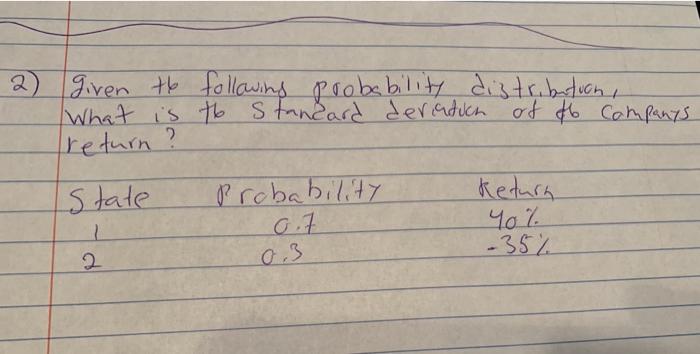 2) Given the following probability distribution,
What is the Standard deviation of the Companys
return?
State Probability Return
1 0.7 40%
2 0.3 -35%